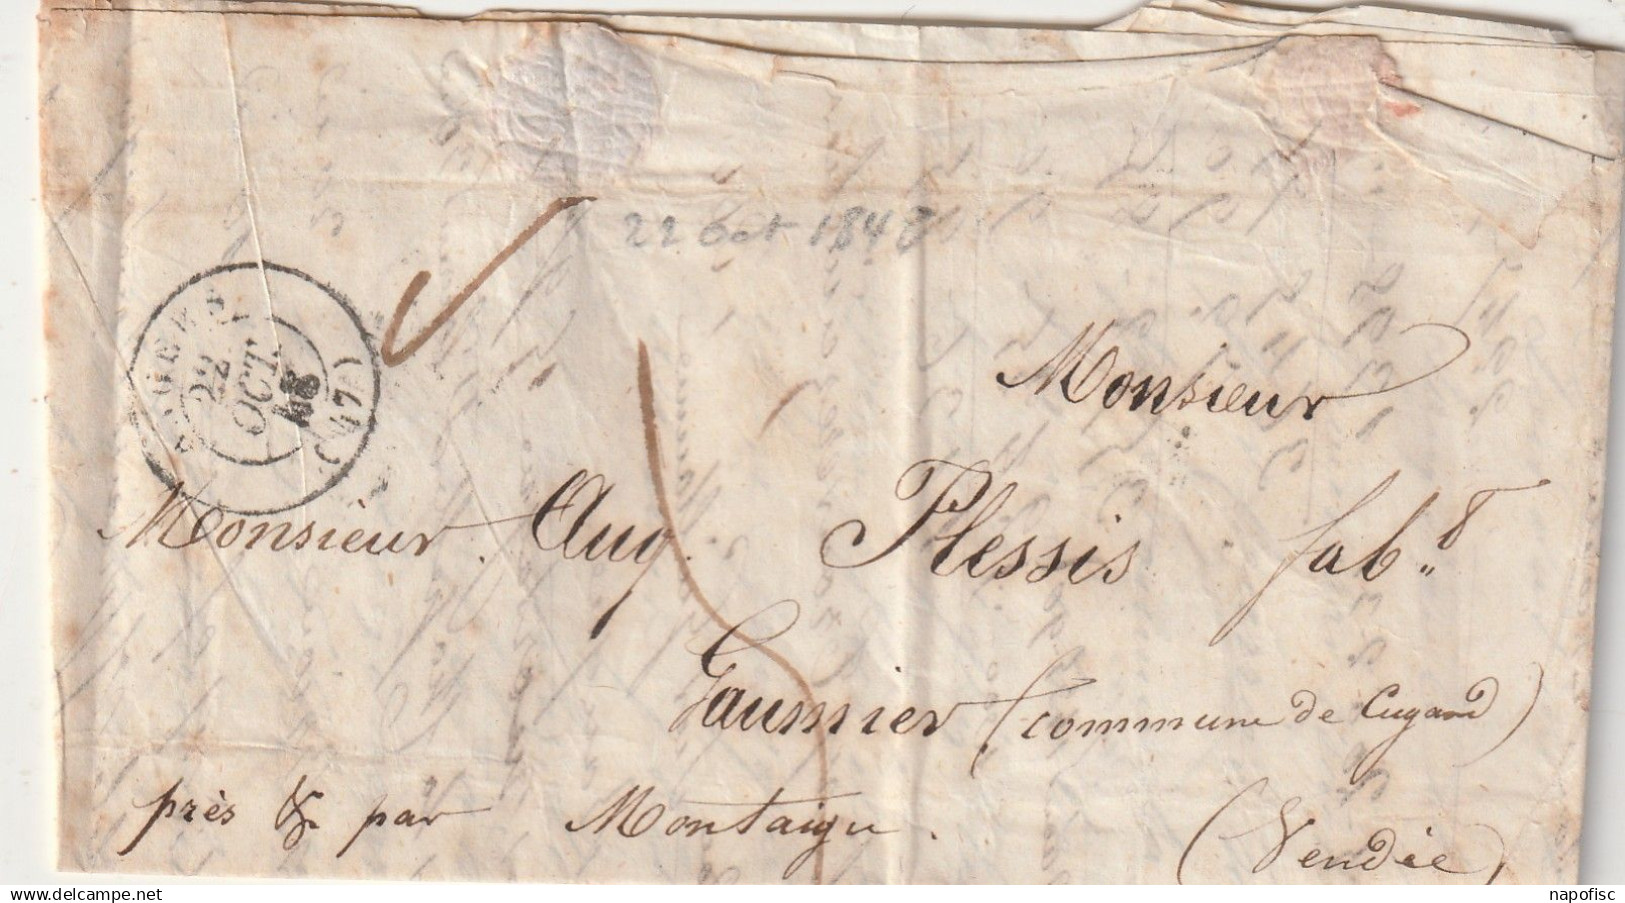 22 Oct 1848
ANGERS
22
OCT.
48
(47)
Monsieur
Monsieur Aug. Plessis fab.t
Gaumier (commune de Cugand)
près & par Montaigu.
(Vendée)
napofisc